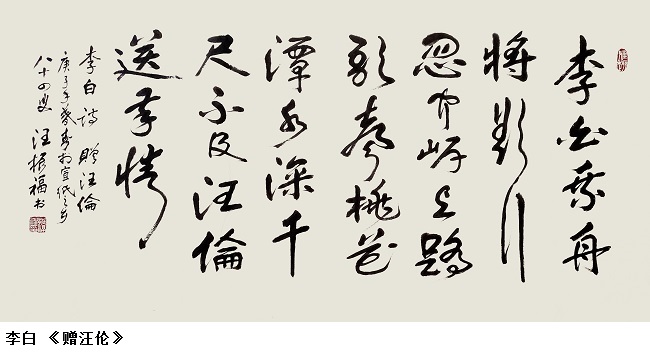 李白乘舟
将欲行
忽聞岸上踏
歌聲桃花
潭水深千
尺不及汪倫
送我情
李白詩 贈汪倫
庚子年暮春於宣紙之乡
八十四叟 汪振福书
李白 《赠汪伦》